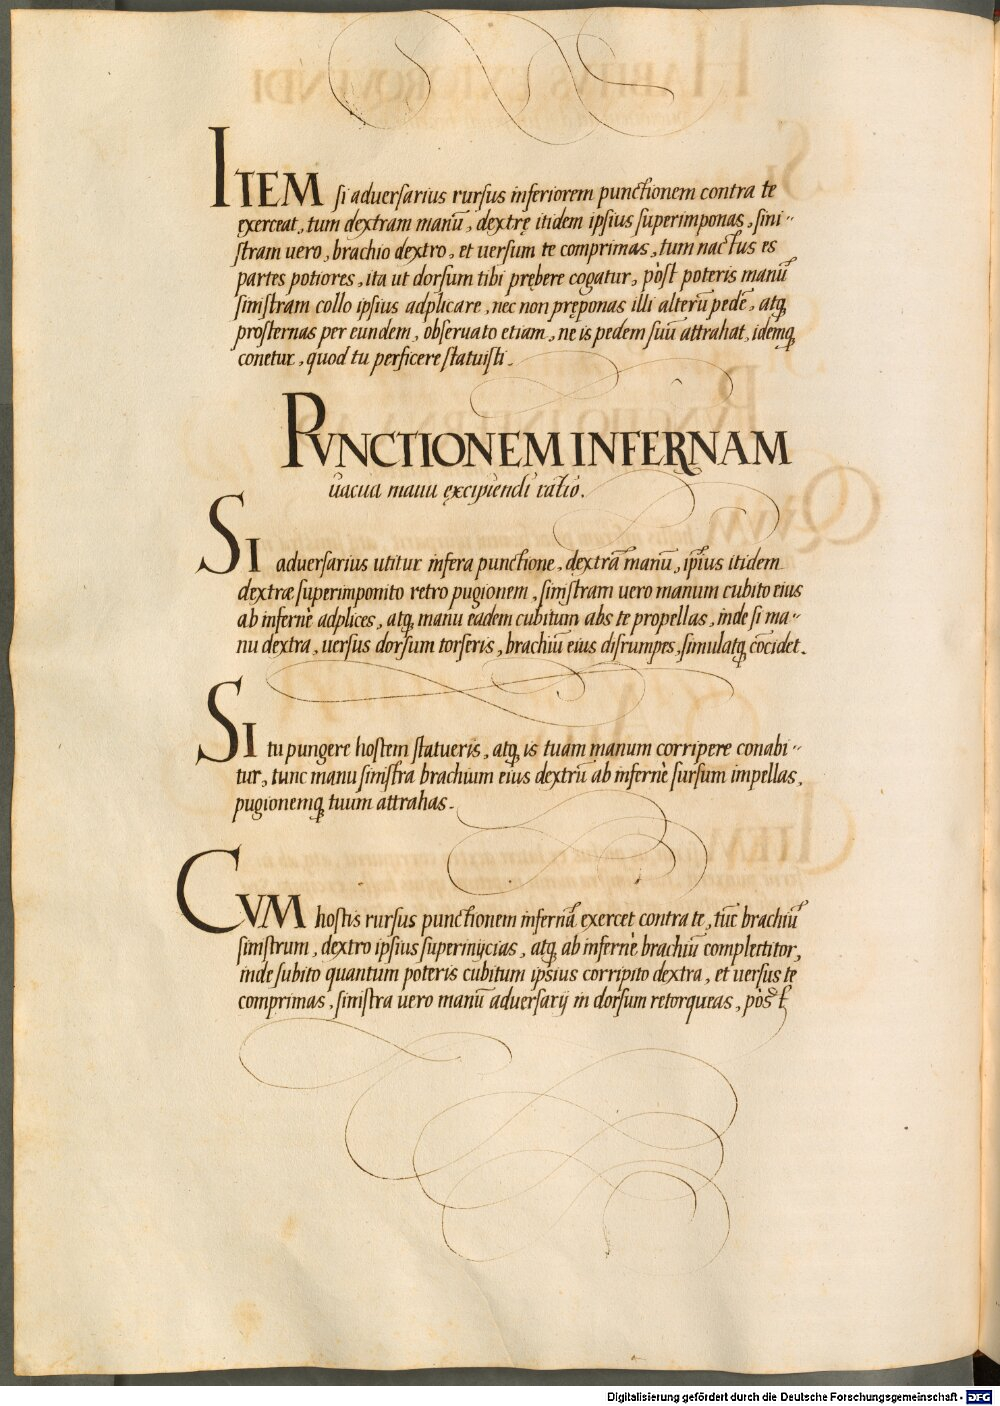 ITEM si aduersarius rursus inferiorem punctionem contra te
exerceat, tum dextram manū, dextrę itidem ipsius superimponas, sini-
stram uero, brachio dextro, et uersum te comprimas, tum nactus es
partes potiores, ita ut dorsum tibi prębere cogatur, pòst poteris manū
sinistram collo ipsius adplicare, nec non pręponas illi alterū pedē, atq;
prosternas per eundem, obseruato etiam, ne is pedem suū attrahat, idemq;
conetur, quod tu perficere statuisti.
PVNCTIONEM INFERNAM
uacua manu ęxcipiendi ratio.
SI aduersarius utitur infera punctione, dextrā manū, ipsius itidem
dextræ superimponito retro pugionem, sinistram uero manum cubito eius
ab infernè adplices, atq; manu eadem cubitum abs te propellas, inde si ma-
nu dextra, uersus dorsum torseris, brachiū eius disrumpes, simulatq; cōcidet.
SI tu pungere hostem statueris, atq; is tuam manum corripere conabi-
tur, tunc manu sinistra brachium eius dextrū ab infernè sursum impellas,
pugionemq; tuum attrahas.
CVM hostis rursus punctionem infernā exercet contra te, tūc brachiū
sinistrum, dextro ipsius superinijcias, atq; ab infernè brachiū complectitor,
inde subito quantum poteris cubitum ipsius corripito dextra, et uersus te
comprimas, sinistra uero manū aduersarij in dorsum retorqueas, pòst
Digitalisierung gefördert durch die Deutsche Forschungsgemeinschaft - DFG